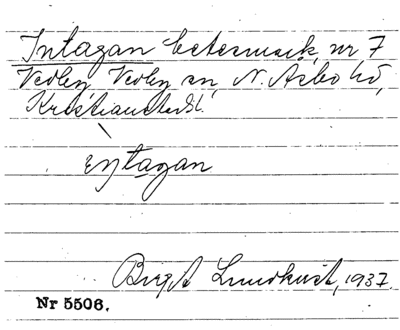 Intagan betesmark, nr 7
Vedby, Vedby sn, N. Åsbo hd,
Kristianstads l.
eŋtagan
Birgit Lundkvist, 1937.
Nr 5506.